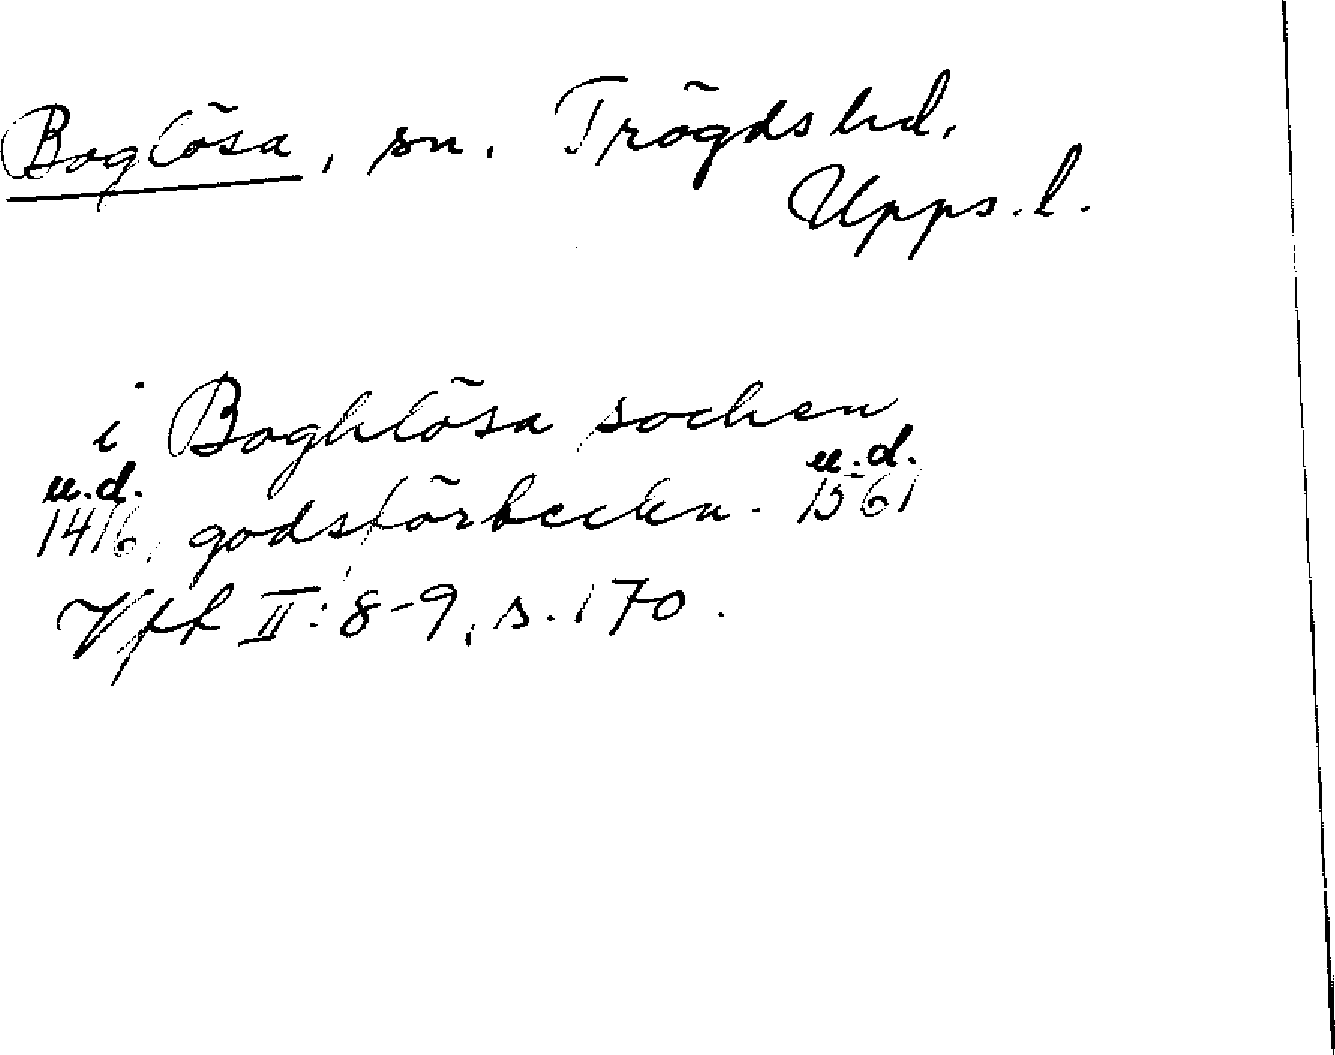 Boglösa, sn. Trögds hd.
Upps. l.
i Boghlösa sochen
u.d. u.d.
1416, godsförteckn. 1561
Vfk II: 8-9, s. 170.